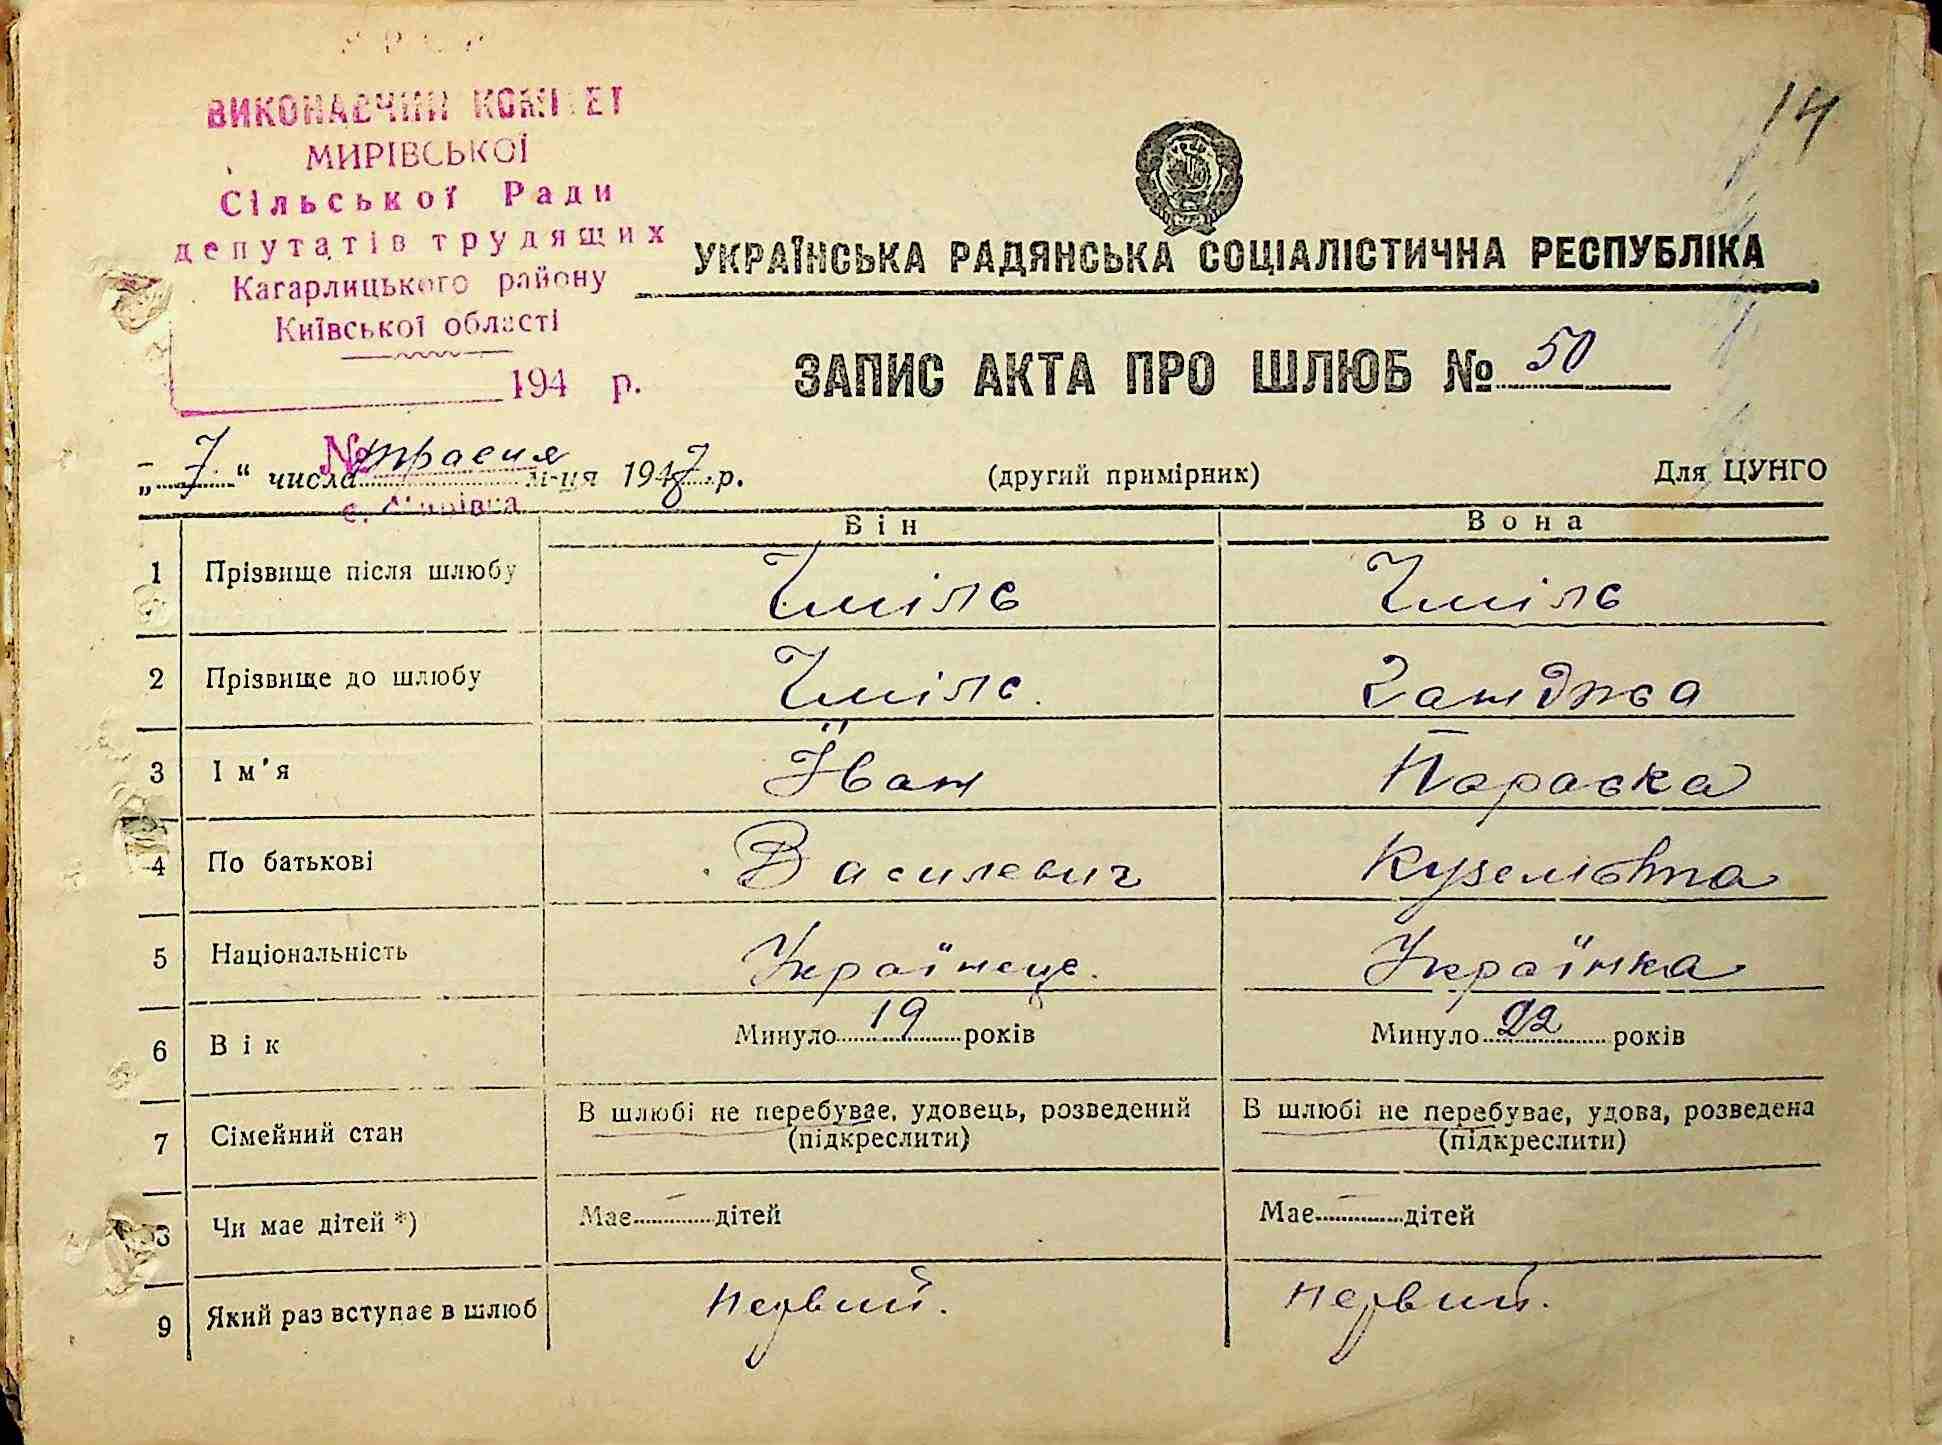 14
ВИКОНАВЧИЙ КОМІТЕТ
МИРІВСЬКОЇ
Сільської Ради
депутатів трудящих
Кагарлицького району
Київської області
194 р.
№
с. Мирівка
УКРАЇНСЬКА РАДЯНСЬКА СОЦІАЛІСТИЧНА РЕСПУБЛІКА
ЗАПИС АКТА ПРО ШЛЮБ № 50
„7“ числа травня м-ця 1947 р. (другий примірник) Для ЦУНГО
Він Вона
1 Прізвище після шлюбу Чміль Чміль
2 Прізвище до шлюбу Чміль Ганджа
3 Ім'я Їван Параска
4 По батькові Василевич
5 Національність Українець. Українка
6 Вік Минуло 19 років Минуло 22 років
7 Сімейний стан В шлюбі не перебуває, удовець, розведений (підкреслити) В шлюбі не перебуває, удова, розведена (підкреслити)
8 Чи має дітей *) Має — дітей Має — дітей
9 Який раз вступає в шлюб первий. первий.